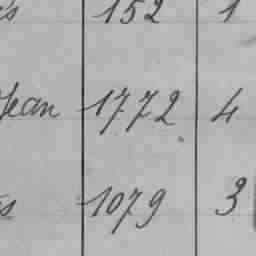 152 1
Jean 1772 4
1079 3